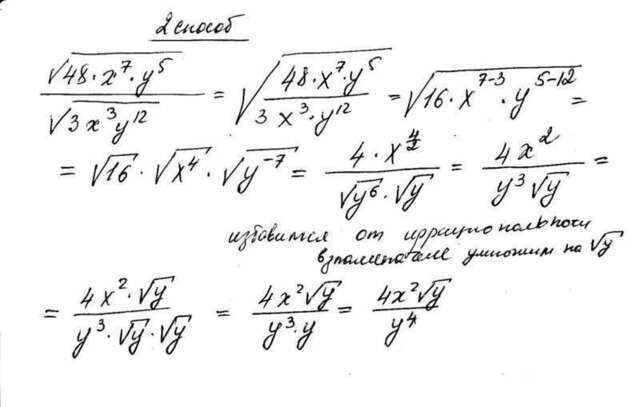 2 способ
√(48·x⁷·y⁵) / √(3x³y¹²) = √((48·x⁷·y⁵) / (3x³·y¹²)) = √(16·x⁷⁻³·y⁵⁻¹²) =
= √16 · √(x⁴) · √(y⁻⁷) = (4·x^(4/2)) / (√(y⁶)·√y) = (4x²) / (y³√y) =
избавимся от иррациональности
в знаменателе умножим на √y
= (4x²·√y) / (y³·√y·√y) = (4x²√y) / (y³·y) = (4x²√y) / y⁴